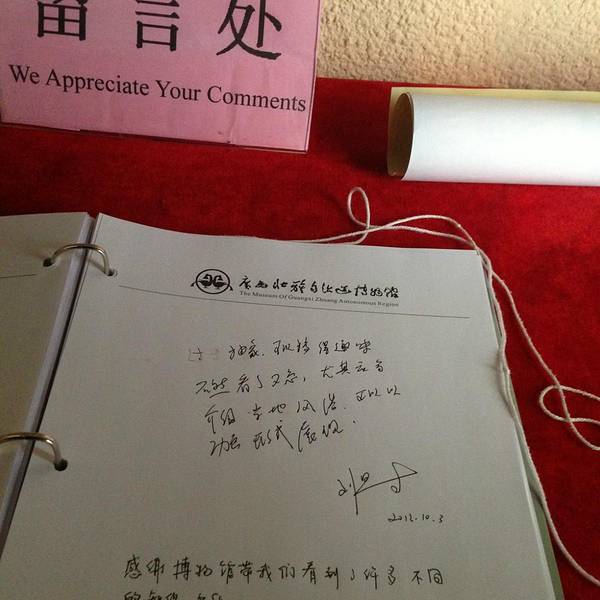 留言处
We Appreciate Your Comments
广西壮族自治区博物馆
The Museum Of Guangxi Zhuang Autonomous Region
可以搞得趣味
不然看了又忘,尤其是
介绍当地风俗,可以以
动画形式展现.
2013.10.3
感谢博物馆带我们看到了许多不同